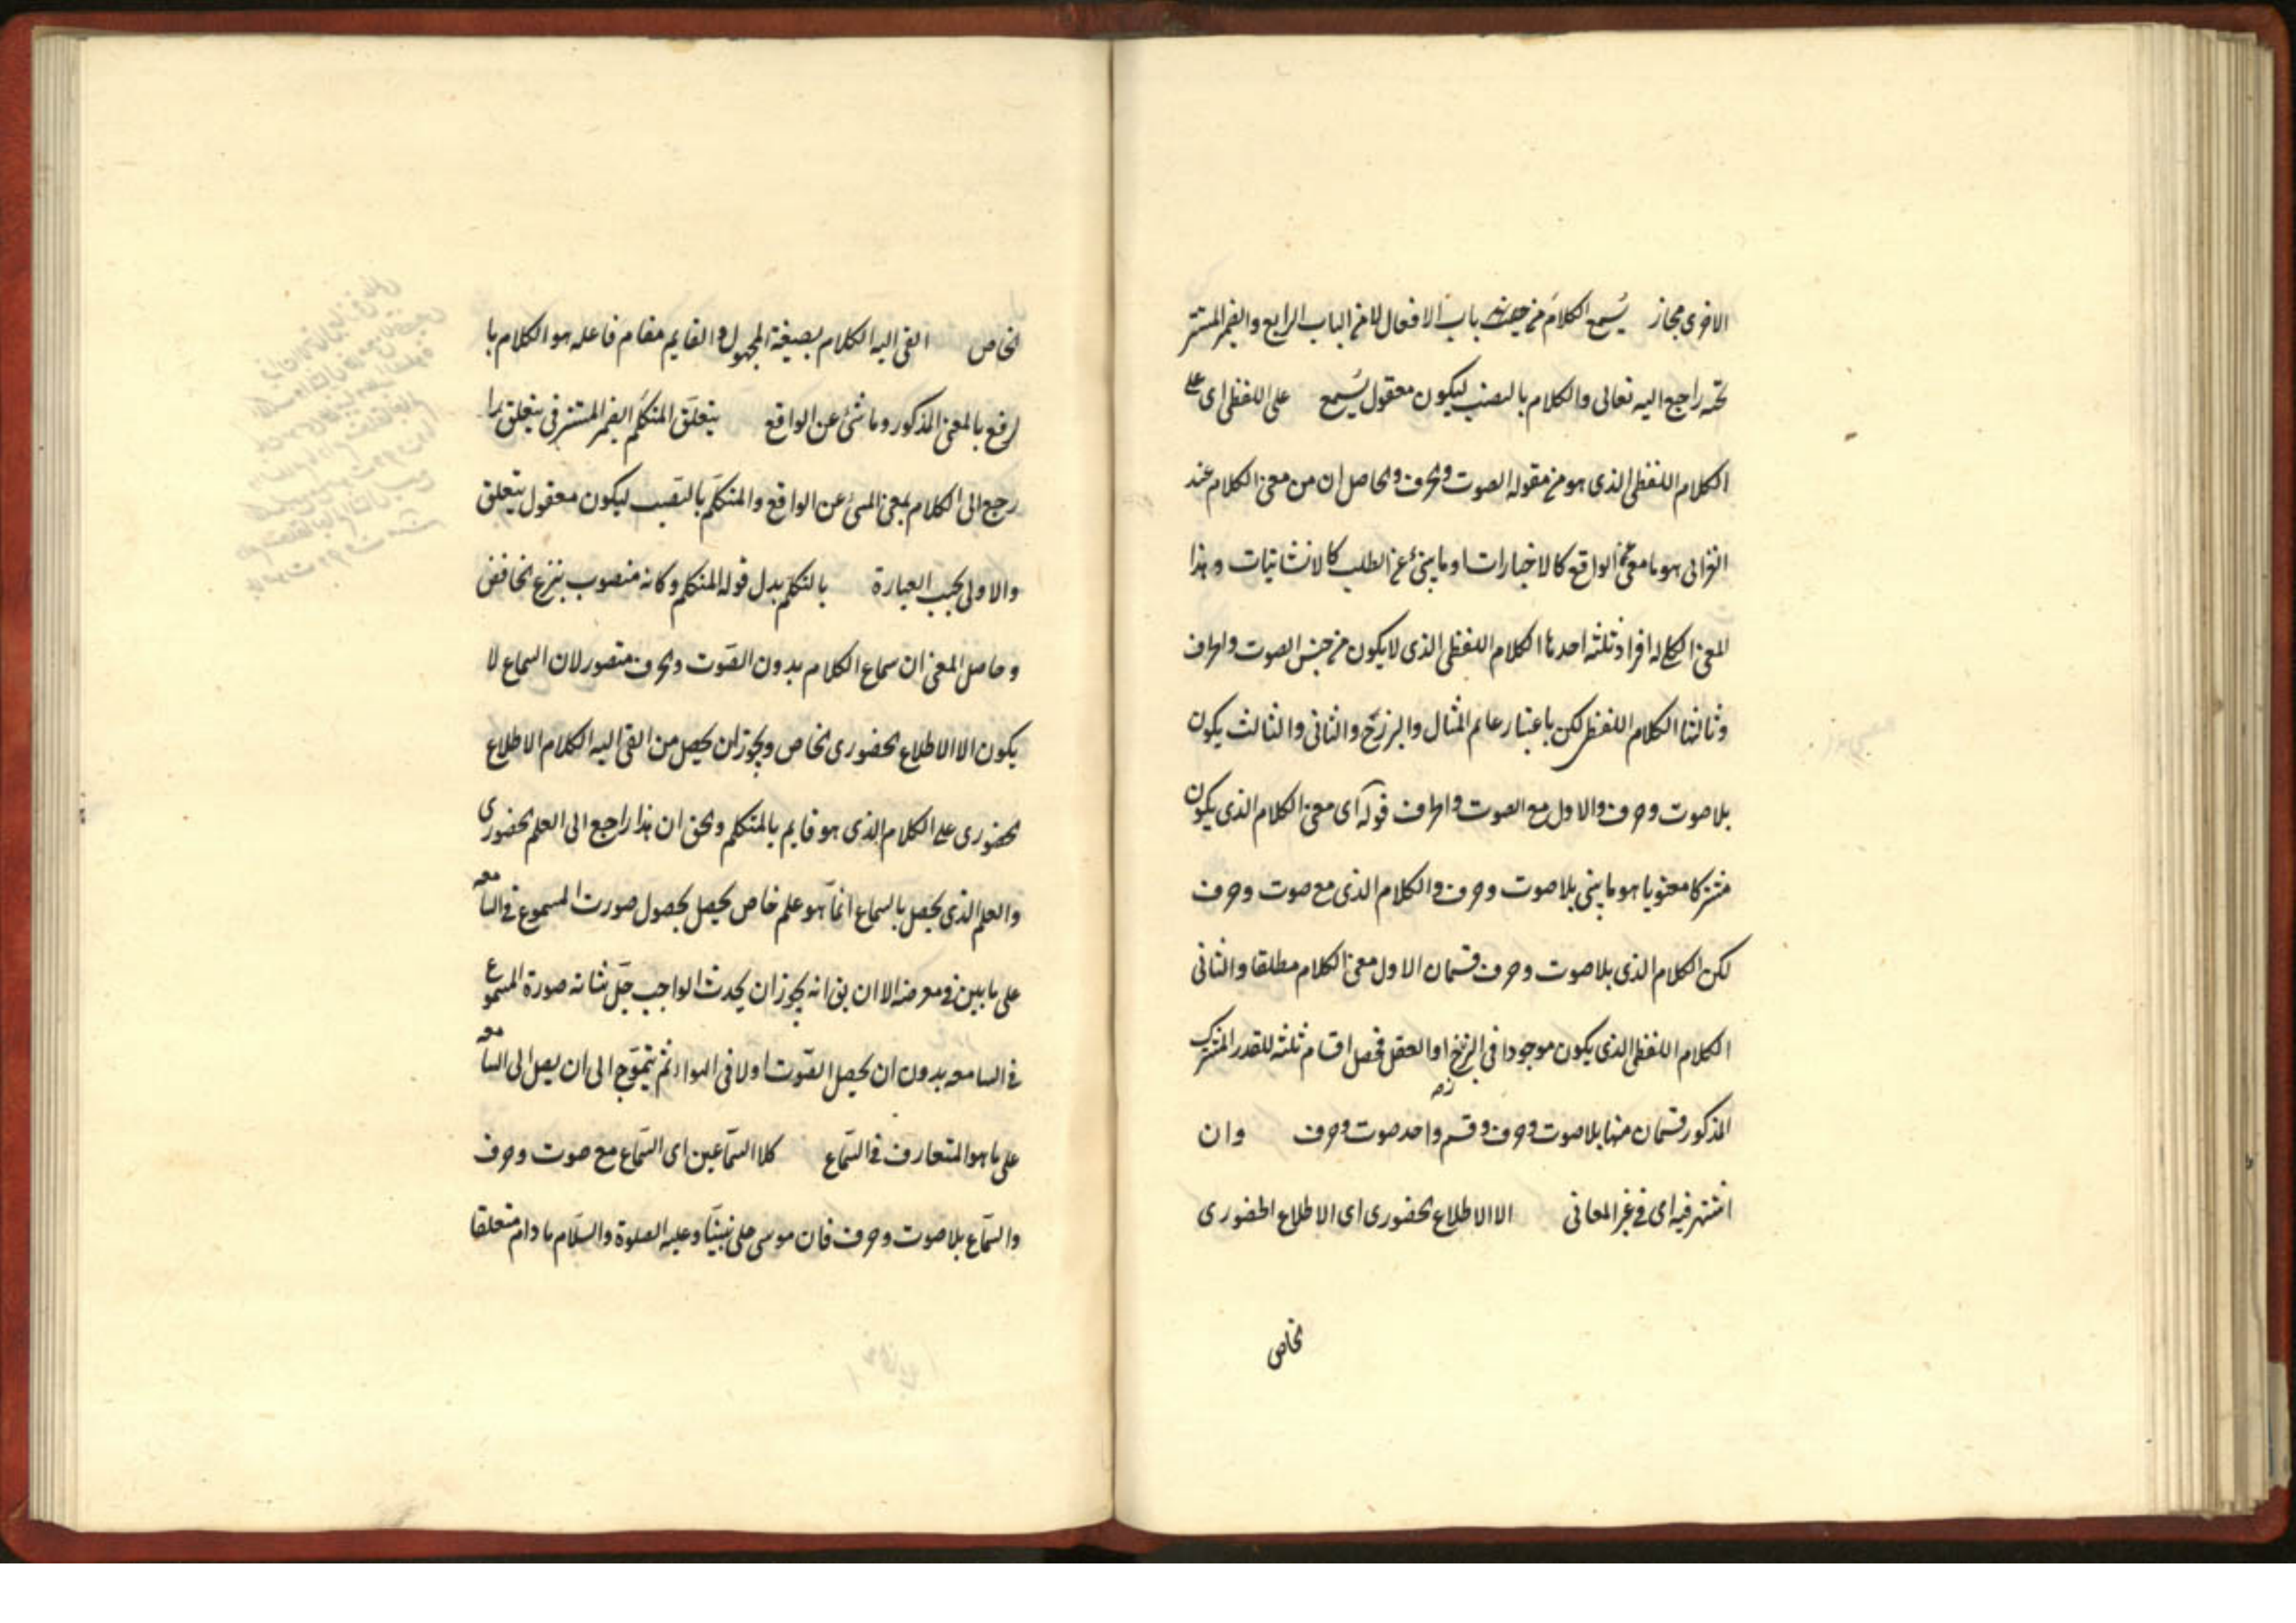 الاخرى مجاز يُسمع الكلامَ من باب الافعال لا من الباب الرابع والضمير المستتر
تحته راجع اليه تعالى والكلام بالنصب ليكون معقول يُسمع على اللفظى اى على
الكلام اللفظى الذى هو من مقولة الصوت والحرف والحاصل ان من معنى الكلام عند
الغزالى هو ما الواقع كالاخبارات او ما ينبئ عن الطلب كالانشائيات وهذا
المعنى الكلى له افراد ثلثة احدها الكلام اللفظى الذى لا يكون من جنس الصوت والحرف
وثالثها الكلام اللفظى لكن باعتبار عالم المثال والبرزخ والثانى والثالث يكون
بلا صوت وحرف والاول مع الصوت والحرف قوله اى معنى الكلام الذى يكون
مشتركا معنويا هو ما ينبئ بلا صوت وحرف والكلام الذى مع صوت وحرف
لكن الكلام الذى بلا صوت وحرف قسمان الاول معنى الكلام مطلقا والثانى
الكلام اللفظى الذى يكون موجودا فى البرزخ او العقل فحصل اقسام ثلثة للقدر المشترك
المذكور قسمان منها بلا صوت وحرف وقسم واحد صوت وحرف وان
اشتهر فيه اى فى غير المعانى الا الاطلاع الحضورى اى الاطلاع الحضورى
الخاص
الخاص القى اليه الكلام بصيغة المجهول والقايم مقام فاعله هو الكلام با
لرفع بالمعنى المذكور وما شئ عن الواقع يتعلق المتكلم الضمير المستتر فى يتعلق را
رجع الى الكلام بمعنى المنبئ عن الواقع والمتكلمَ بالنصب ليكون معقول يتعلق
والاولى بحسب العبارة بالتكلم بدل قوله المتكلم وكانه منصوب بنزع الخافض
وحاصل المعنى ان سماع الكلام بدون الصوت والحرف متصور لان السماع لا
يكون الا الاطلاع الحضورى الخاص ويجوز ان يحصل من القى اليه الكلام الاطلاع
الحضورى على الكلام الذى هو قايم بالمتكلم والحق ان هذا راجع الى العلم الحضورى
والعلم الذى يحصل بالسماع انما هو علم خاص يحصل بحصول صورت المسموع فى السامعه
على ما بين فى معرضه الا ان يق انه يجوز ان يحدث الواجب جلّ شانه صورة المسموع
فى السامعه بدون ان يحصل الصوت اولا فى الهواء ثم يتموّج الى ان يصل الى السامعه
على ما هو المتعارف فى السّماع كلا السّماعين اى السّماع مع صوت وحرف
والسّماع بلا صوت وحرف فان موسى على نبيّنا وعليه الصلوة والسّلام ما دام متعلقا